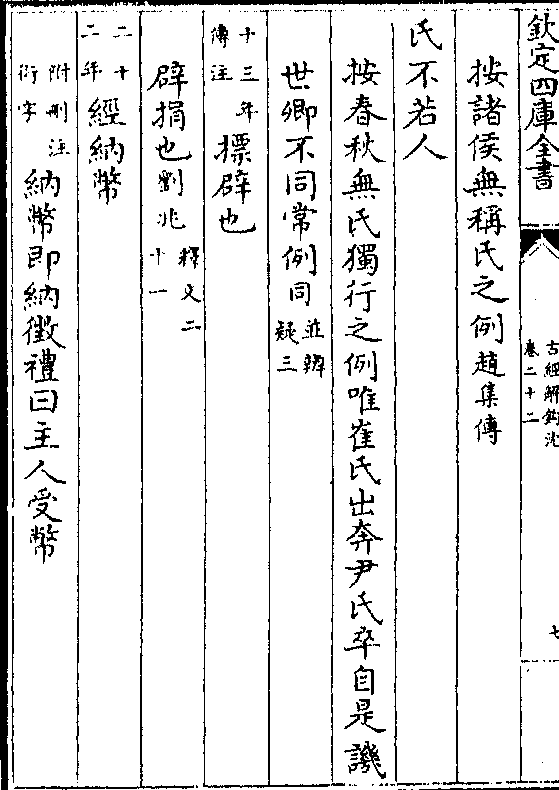 欽定四庫全書
古經解鉤沈
卷二十二
七
按諸侯無稱氏之例趙集傳
氏不若人
按春秋無氏獨行之例唯崔氏出奔尹氏卒自是譏
世卿不同常例同並辨疑三
十三年傳注摽辟也
辟捐也劉兆釋文二十一
二十二年經納幣
附刪注衍字納幣即納徵禮曰主人受幣